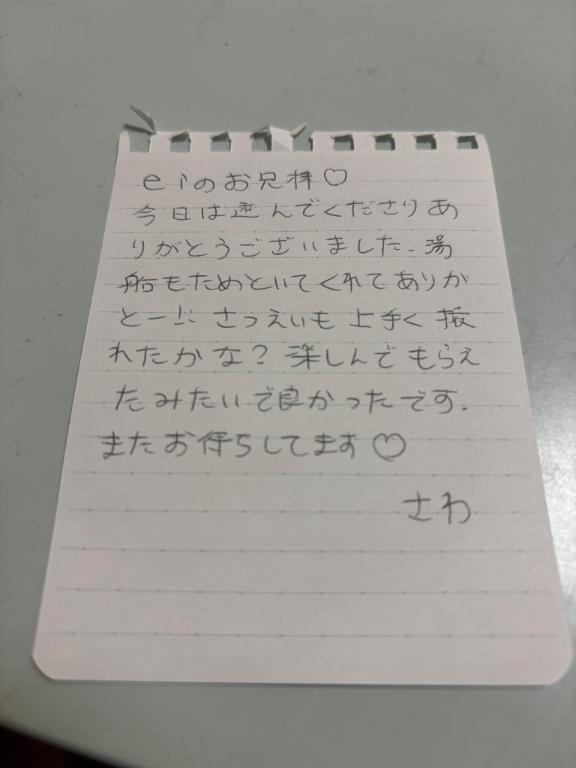 eiのお兄様♡
今日は遊んでくださりあ
りがとうございました、湯
船もためといてくれてありが
とー!! さつえいも上手く撮
れたかな?楽しんでもらえ
たみたいで良かったです.
またお待ちしてます♡
さわ